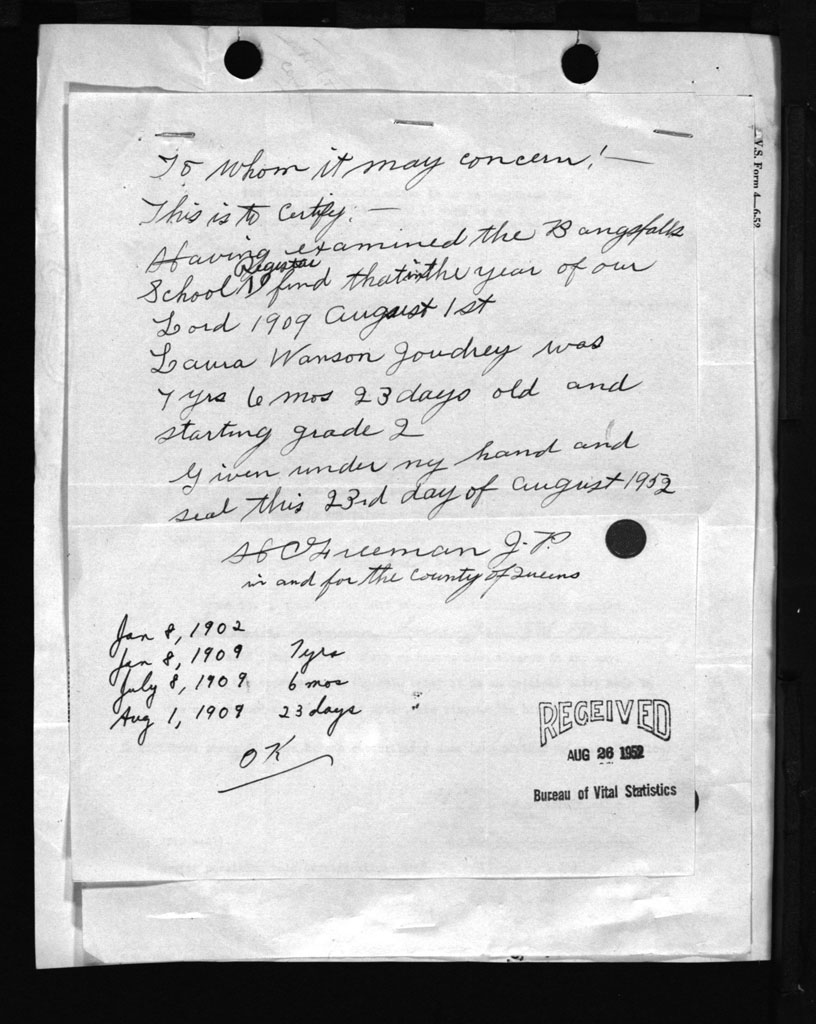 To whom it may concern! —
This is to Certify. —
Having examined the Bangsfalls
School Registar I find that in the year of our
Lord 1909 August 1st
Laura Wanson Joudrey was
7 yrs 6 mos 23 days old and
starting grade 2
Given under my hand and
seal this 23rd day of August 1952
H C Freeman J. P.
in and for the County of Queens
Jan 8, 1902
Jan 8, 1909 7 yrs
July 8, 1909 6 mos
Aug 1, 1909 23 days "
OK
RECEIVED
AUG 26 1952
Bureau of Vital Statistics
V.S. Form 4—6.52